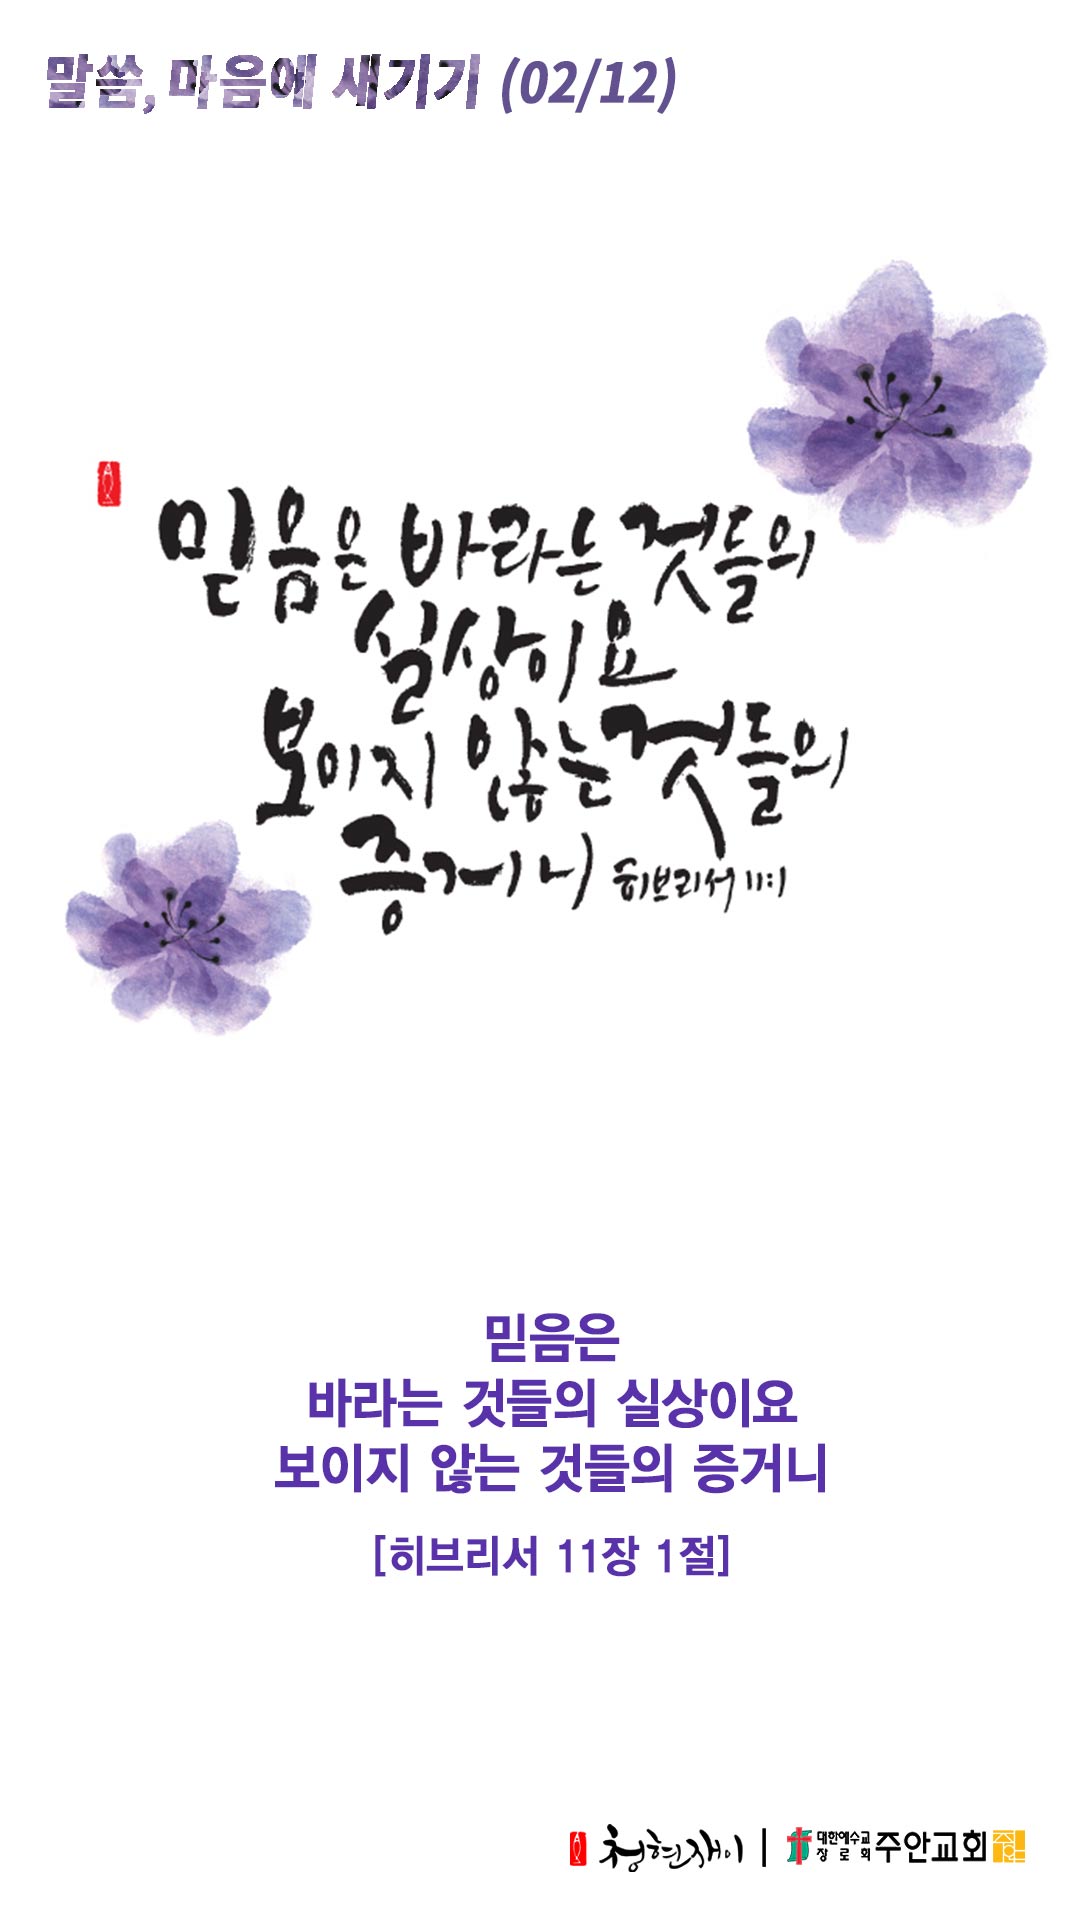 말씀, 마음에 새기기 (02/12)
믿음은 바라는 것들의
실상이요
보이지 않는 것들의
증거니 히브리서 11:1
믿음은
바라는 것들의 실상이요
보이지 않는 것들의 증거니
[히브리서 11장 1절]
청현재이 | 대한예수교
장로회 주안교회